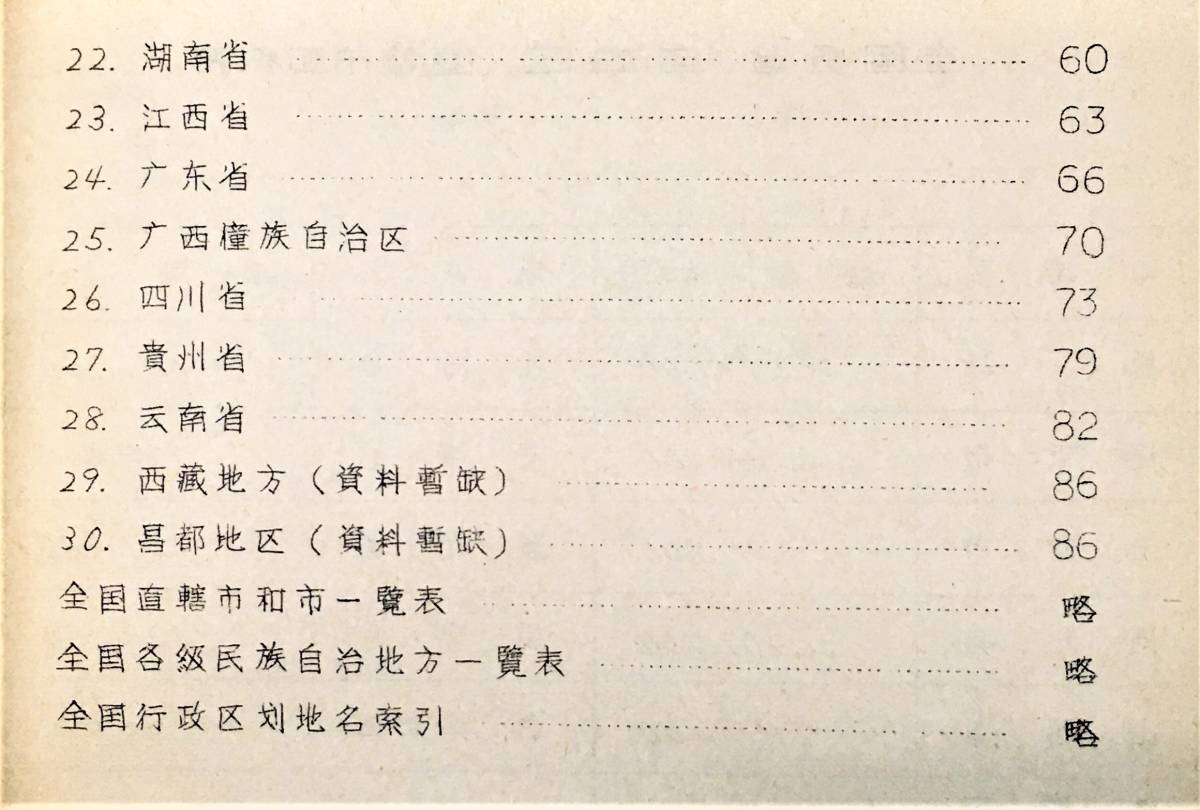 22. 湖南省 ………… 60
23. 江西省 ………… 63
24. 广东省 ………… 66
25. 广西僮族自治区 ………… 70
26. 四川省 ………… 73
27. 貴州省 ………… 79
28. 云南省 ………… 82
29. 西藏地方(資料暫缺) ………… 86
30. 昌都地区(資料暫缺) ………… 86
全国直轄市和市一覽表 ………… 略
全国各級民族自治地方一覽表 ………… 略
全国行政区划地名索引 ………… 略